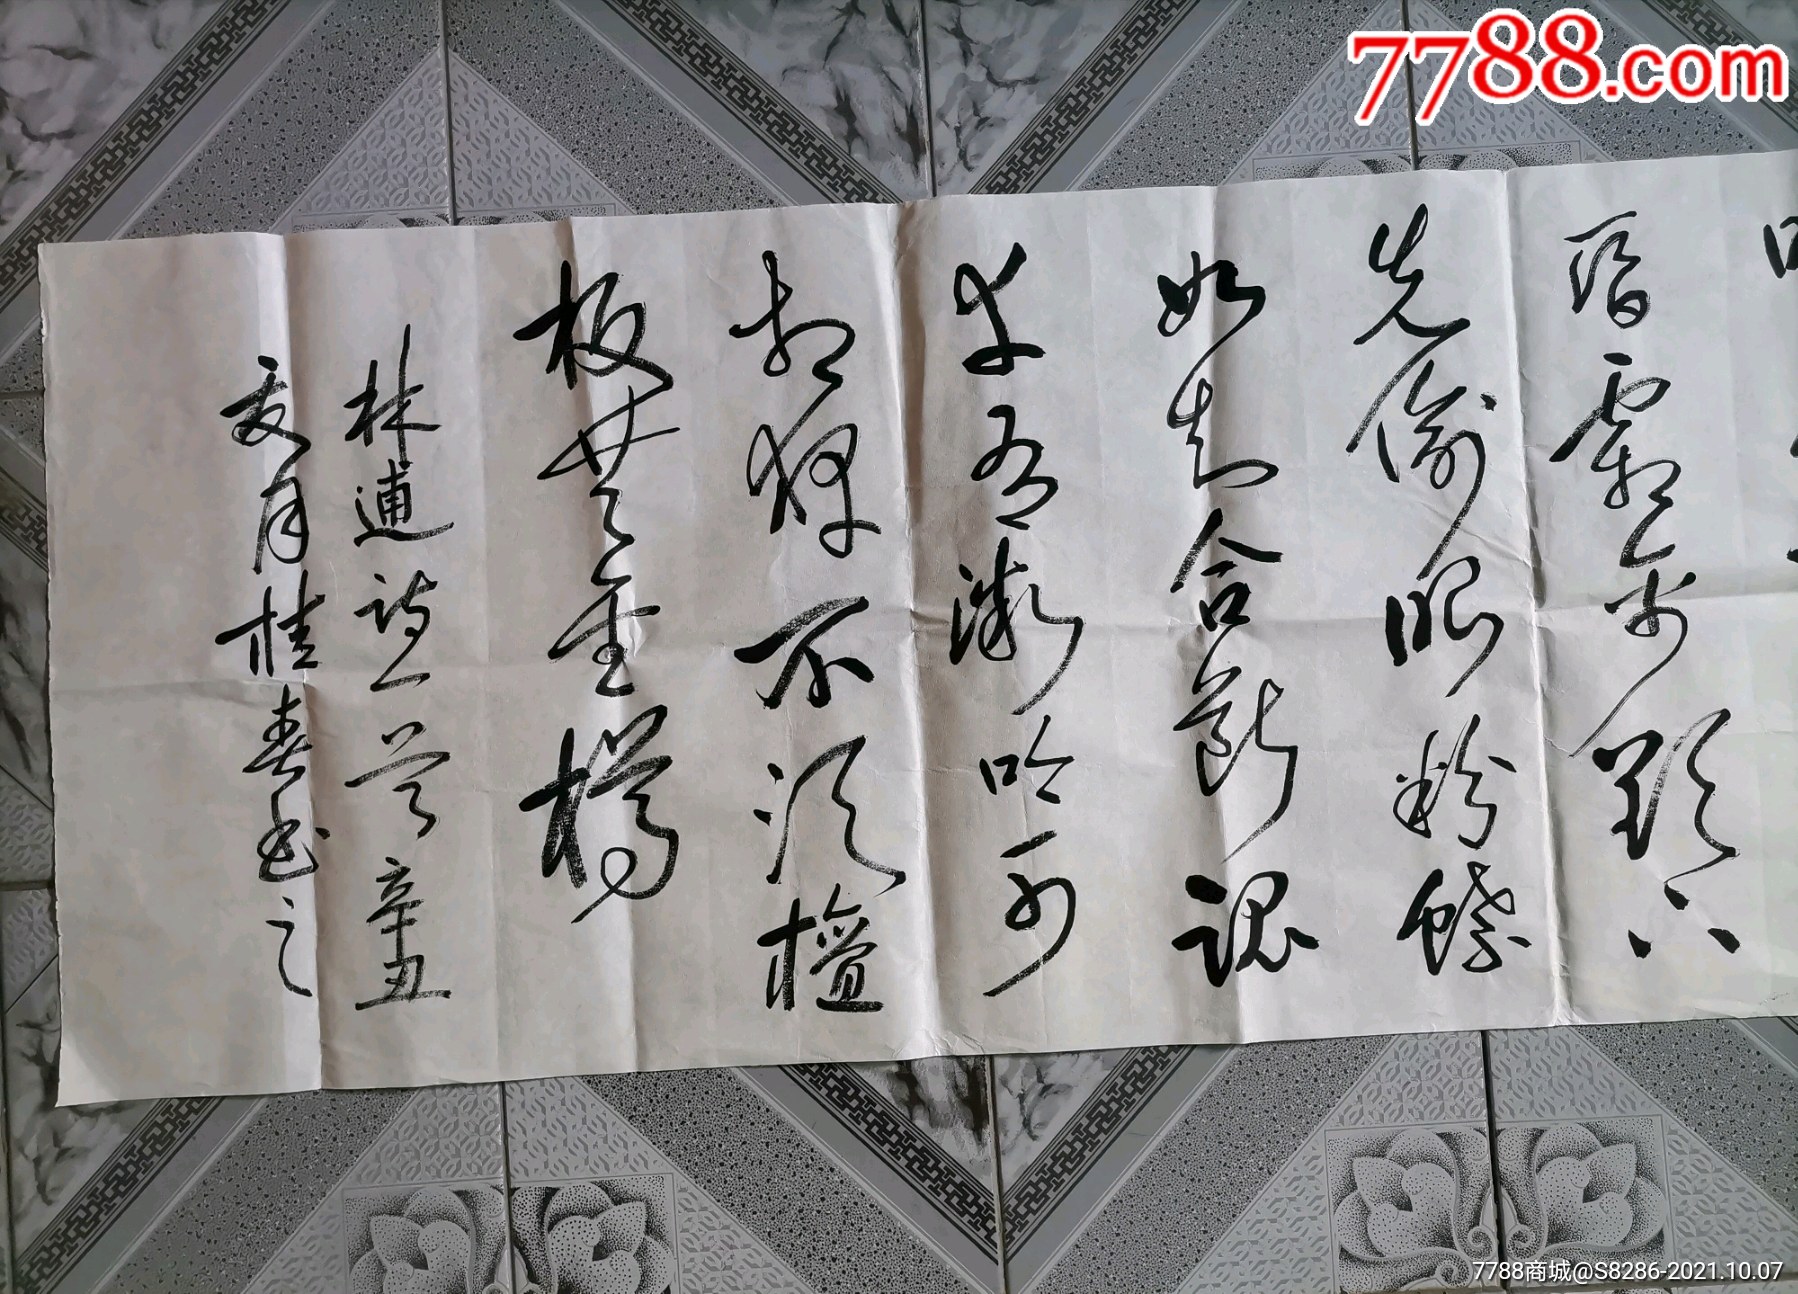 昏霜禽欲下
先偷眼粉蝶
如知合断魂
幸有微吟可
相狎不须檀
板共金樽
林逋诗一首辛丑
夏月桂春书之
7788.com
7788商城@S8286-2021.10.07